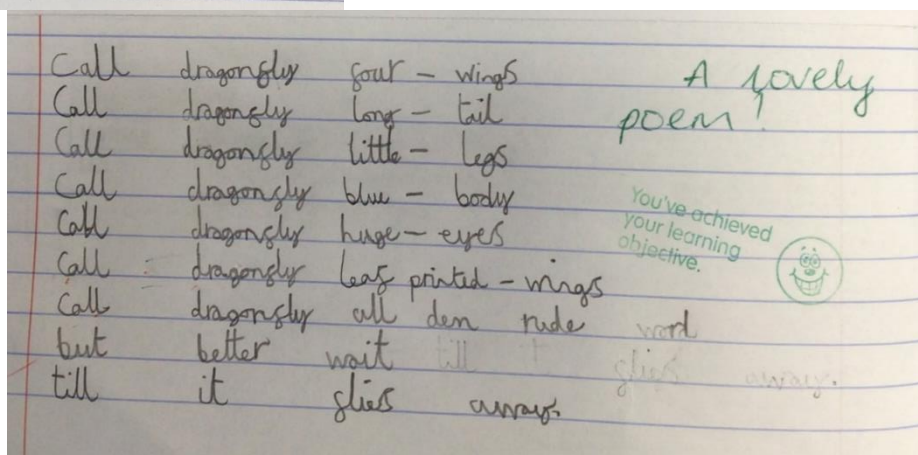 Call dragonfly four - wings
Call dragonfly long - tail
Call dragonfly little - legs
Call dragonfly blue - body
Call dragonfly huge - eyes
Call dragonfly leaf printed - wings
Call dragonfly all den rude word
but better wait till it flies away.
till it flies away.
A lovely
poem!
You've achieved
your learning
objective.